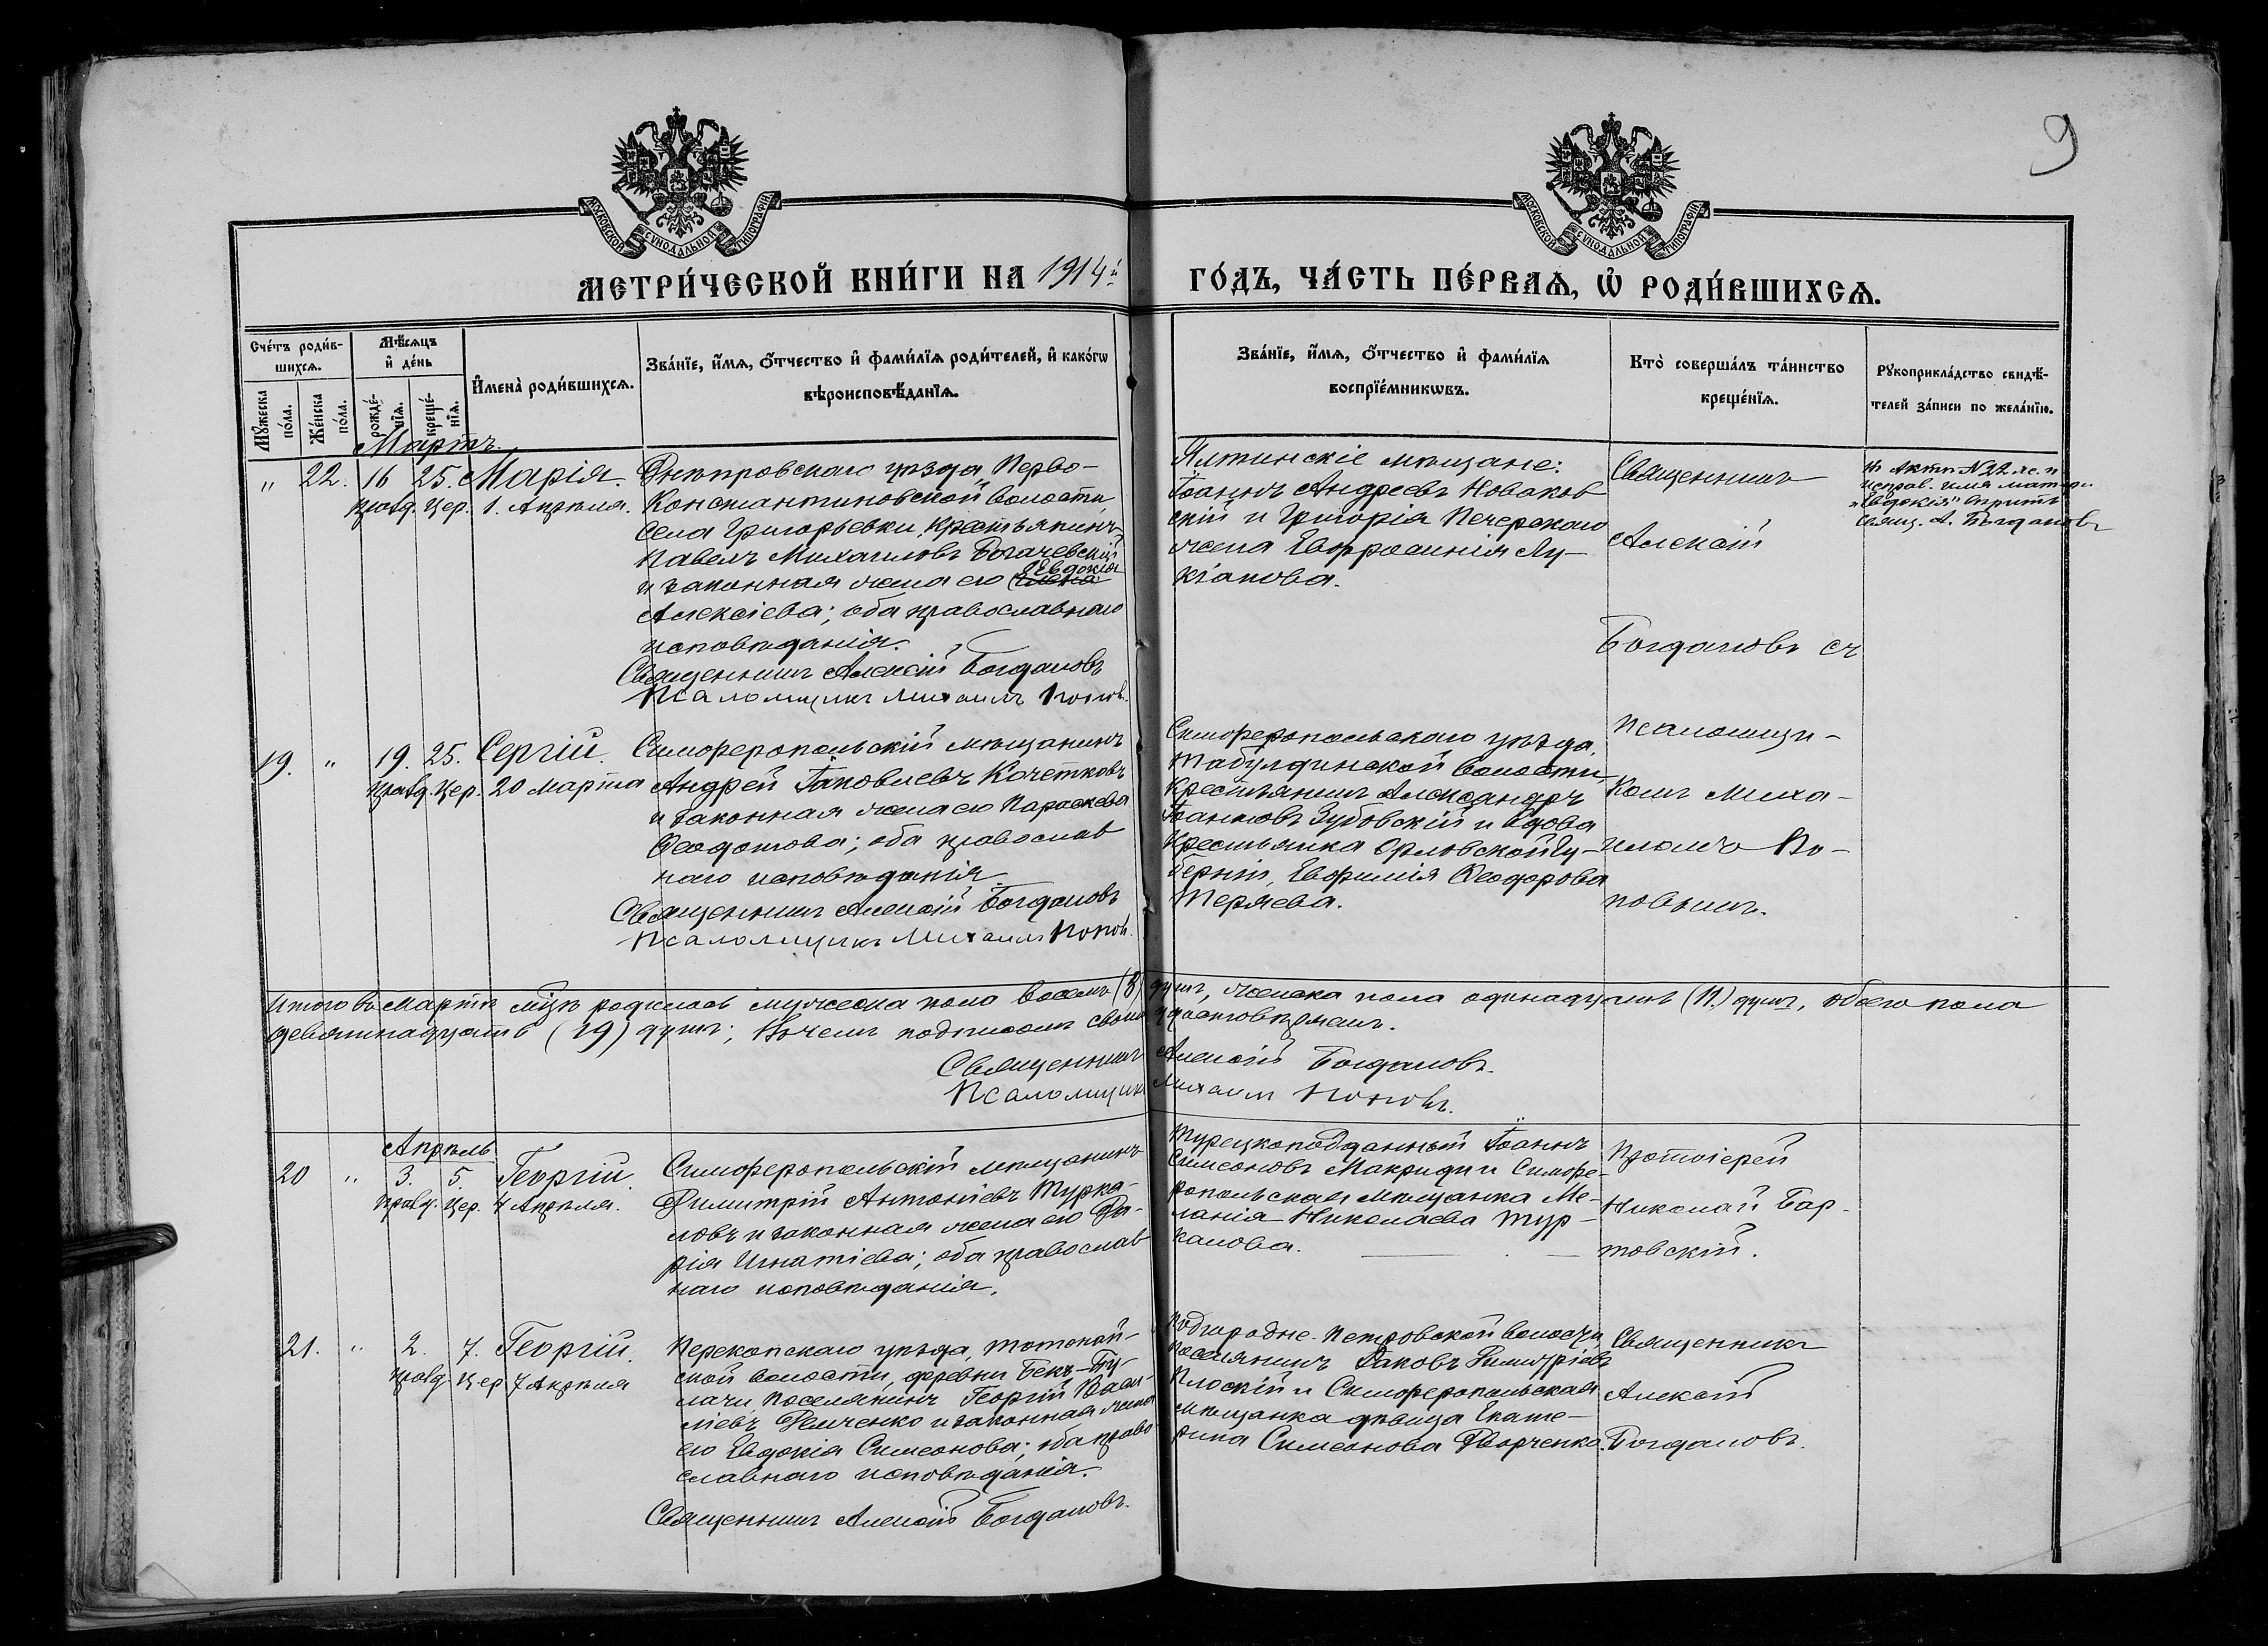 9
МОСКОВСКОЙ СѴНОДАЛЬНОЙ ТИПОГРАФІИ
МОСКОВСКОЙ СѴНОДАЛЬНОЙ ТИПОГРАФІИ
МЕТРИ́ЧЕСКОЙ КНИ́ГИ НА 1914й
ГО́ДЪ, ЧА́СТЬ ПЕ́РВАѦ, Ѡ҆ РОДИ́ВШИХСѦ.
Сче́тъ роди́в-
шихсѧ.
Мѣ́сѧцъ
и҆ де́нь
И҆мена̀ роди́вшихсѧ.
Мꙋ́жеска
по́ла.
Же́нска
по́ла.
рожде́-
нїѧ.
креще́-
нїѧ.
Зва́нїе, и҆́мѧ, ѻ҆́тчество и҆ фами́лїѧ роди́телей, и҆ како́гѡ
вѣроисповѣ́данїѧ.
Зва́нїе, и҆́мѧ, ѻ҆́тчество и҆ фами́лїѧ
воспрїе́мникѡвъ.
Кто̀ соверша́лъ та́инство
креще́нїѧ.
Рꙋкоприкла́дство свидѣ́-
телей за́писи по жела́нїю.
Мартъ.
" 22. 16 25. Марія.
правд. Цер. 1. Апрѣля.
Днѣпровскаго уѣзда, Перво-
Константиновской волости,
села Григорьевки, крестьянинъ
Павелъ Михаиловъ Богачевскій
и законная жена его Евдокія
Алексіева; оба православнаго
исповѣданія.
Священникъ Алексій Богдановъ
Псаломщикъ Михаилъ Поповъ.
Ялтинскіе мѣщане:
Іоаннъ Андреевъ Новаков
скій и Григорія Печерскаго
жена Евфросинія Лу-
кіанова.
Священникъ
Алексій
Богдановъ съ
Псаломщи-
комъ Миха-
иломъ По-
повымъ.
Въ актѣ №22 ж. п
исправ. имя матери
"Евдокія" вѣрить
Свящ. А. Богдановъ
19. " 19. 25. Сергій.
правд. Цер. 20 Марта
Симферопольскій мѣщанинъ
Андрей Іаковлевъ Кочетковъ
и законная жена его Параскева
Ѳеодотова; оба православ
наго исповѣданія.
Священникъ Алексій Богдановъ
Псаломщикъ Михаилъ Поповъ.
Симферопольскаго уѣзда,
Табулдинской волости,
крестьянинъ Александръ
Іоанновъ Зубовскій и вдова
крестьянка Орловской Гу-
берніи, Евфимія Ѳеодорова
Теряева.
Итого въ Мартѣ мѣсяцѣ родилось мужеска пола восемь (8) душъ, женска пола одинадцать (11.) душъ, обоего пола
девятнадцать (19) душъ; въ чемъ подписомъ своимъ удостовѣряемъ.
Священникъ Алексій Богдановъ.
Псаломщикъ Михаилъ Поповъ.
Апрѣль
20 " 3. 5. Георгій.
правд. Цер. 4 Апрѣля.
Симферопольскій мѣщанинъ
Димитрій Антоніевъ Турка-
ловъ и законная жена его Да-
рія Игнатіева; оба православ
наго исповѣданія.
Турецкоподданный Іоаннъ
Симеоновъ Макриди и Симфе-
ропольская мѣщанка Ме-
ланія Николаева Тур-
калова.
Протоіерей
Николай Бар-
товскій.
21. " 2. 7. Георгій.
правд Цер 7 Апрѣля
Перекопскаго уѣзда, Тотонай-
ской волости, деревни Бекъ-Бу-
лачи, поселянинъ Георгій Васи-
ліевъ Демченко и законная жена
его Евдокія Симеонова; оба право
славнаго исповѣданія.
Священникъ Алексій Богдановъ.
Подгородне-Петровской волости
поселянинъ Іаковъ Димитріевъ
Плоскій и Симферопольская
мѣщанка дѣвица Екате-
рина Симеонова Дворченко.
Священникъ
Алексій
Богдановъ.